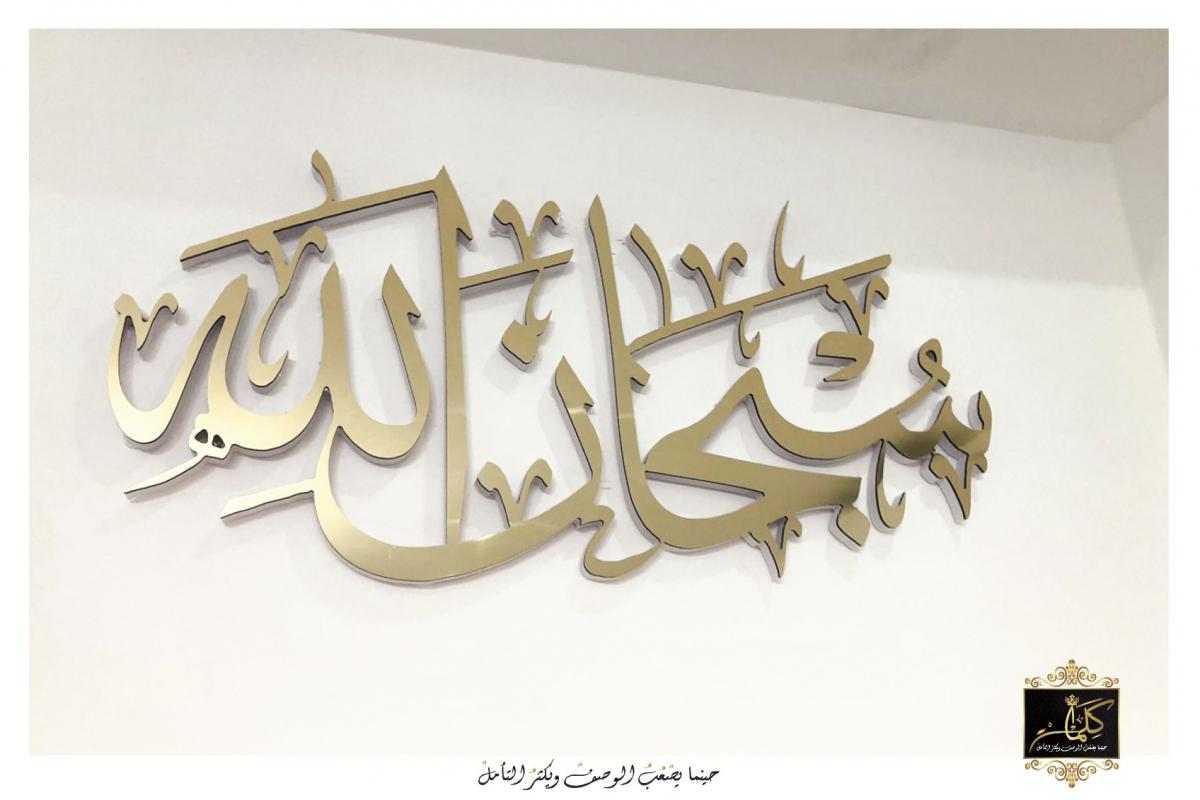 سُبْحَانَ اللّٰهِ
كَلِمات
حينما يصْعُبُ الوصفُ ويكثرُ التأمل
حينما يصْعُبُ الوصفُ ويكثرُ التأملْ